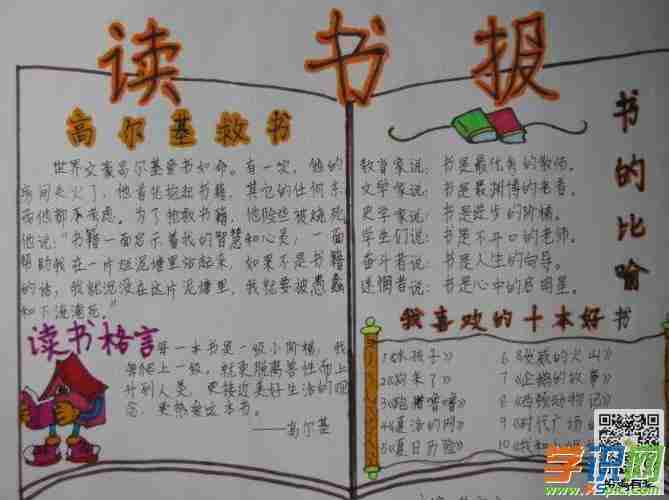 读书报
高尔基救书
世界文豪高尔基爱书如命。有一次，他的
房间失火了，他首先抱起书籍，其它的任何东
西他都不考虑。为了抢救书籍，他险些被烧死。
他说："书籍一面启示着我的智慧和心灵，一面
帮助我在一片烂泥塘里站起来，如果不是书籍
的话，我就沉没在这片泥塘里，我就要被愚蠢
和下流淹死。"
读书格言
每一本书是一级小阶梯，我
每爬上一级，就更脱离兽性而上
升到人类，更接近美好生活的观
念，更热爱这本书。
——高尔基
书的比喻
教育家说：书是最优秀的教师。
文学家说：书是最渊博的老者。
史学家说：书是进步的阶梯。
学生们说：书是不开口的老师。
奋斗者说：书是人生的向导。
迷惘者说：书是心中的启明星。
我喜欢的十本好书
1《水孩子》
2《狗来了》
4《夏洛的网》
5《夏日历险》
6《愤怒的火山》
7《企鹅的故事》
8《西顿动物记》
9《时代广场的
10《我和小姐姐
学识网